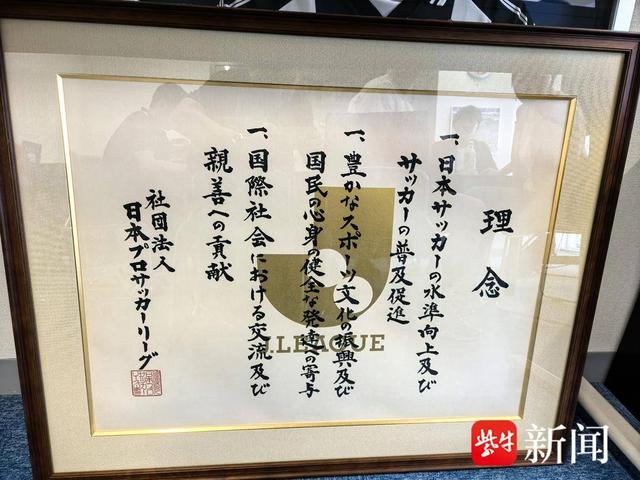 理念
一、日本サッカーの水準向上及び
サッカーの普及促進
一、豊かなスポーツ文化の振興及び
国民の心身の健全な発達への寄与
一、国際社会における交流及び
親善への貢献
社団法人
日本プロサッカーリーグ
J.LEAGUE
紫牛新闻